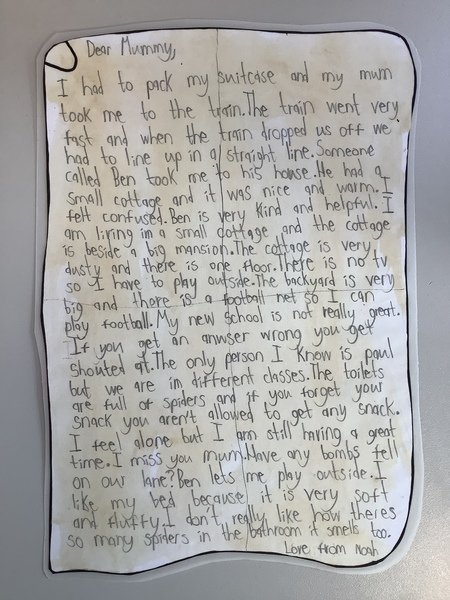 Dear Mummy,
I had to pack my suitcase and my mum
took me to the train.The train went very
fast and when the train dropped us off we
had to line up in a straight line.Someone
called Ben took me to his house.He had a
small cottage and it was nice and warm.I
felt confused.Ben is very kind and helpful.I
am living in a small cottage and the cottage
is beside a big mansion.The cottage is very
dusty and there is one floor.There is no tv
so I have to play outside.The backyard is very
big and there is a football net so I can
play football.My new school is not really great.
If you get an anwser wrong you get
shouted at.The only person I know is paul
but we are in different classes.The toilets
are full of spiders and if you forget your
snack you aren't allowed to get any snack.
I feel alone but I am still having a great
time.I miss you mum.Have any bombs fell
on our lane?Ben lets me play outside.I
like my bed because it is very soft
and fluffy.I don't really like how theres
so many spiders in the bathroom it smells too.
Love from Noah